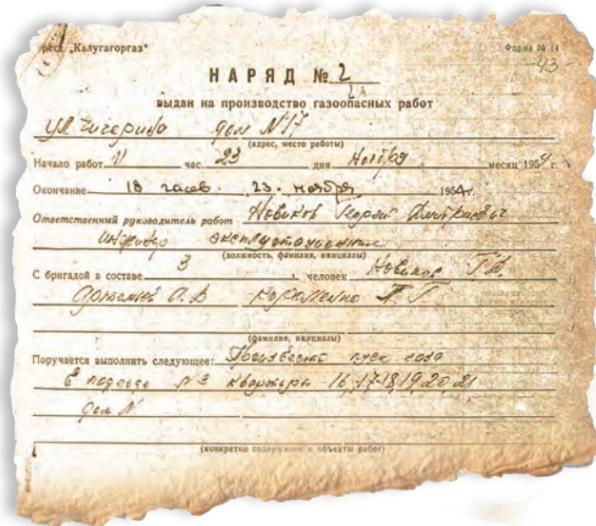 трест „Калугагоргаз"
Форма № 14
-43-
НАРЯД № 2
выдан на производство газоопасных работ
ул. Чичерина дом №17
(адрес, место работы)
Начало работ 11 час 23 дня Ноября месяц 1954 г.
Окончание 18 часов. 23. ноября 1954г.
Ответственный руководитель работ Новиков Георгий Дмитриевич
инженер эксплуатационник
(должность, фамилия, инициалы)
С бригадой в составе 3 человек Новиков Г.Д.
(фамилия, инициалы)
Поручается выполнить следующее: Произвести пуск газа
В подъезде № 3 квартиры 16, 17-18, 19, 20, 21
дом №
(конкретно содержание и объекты работ)